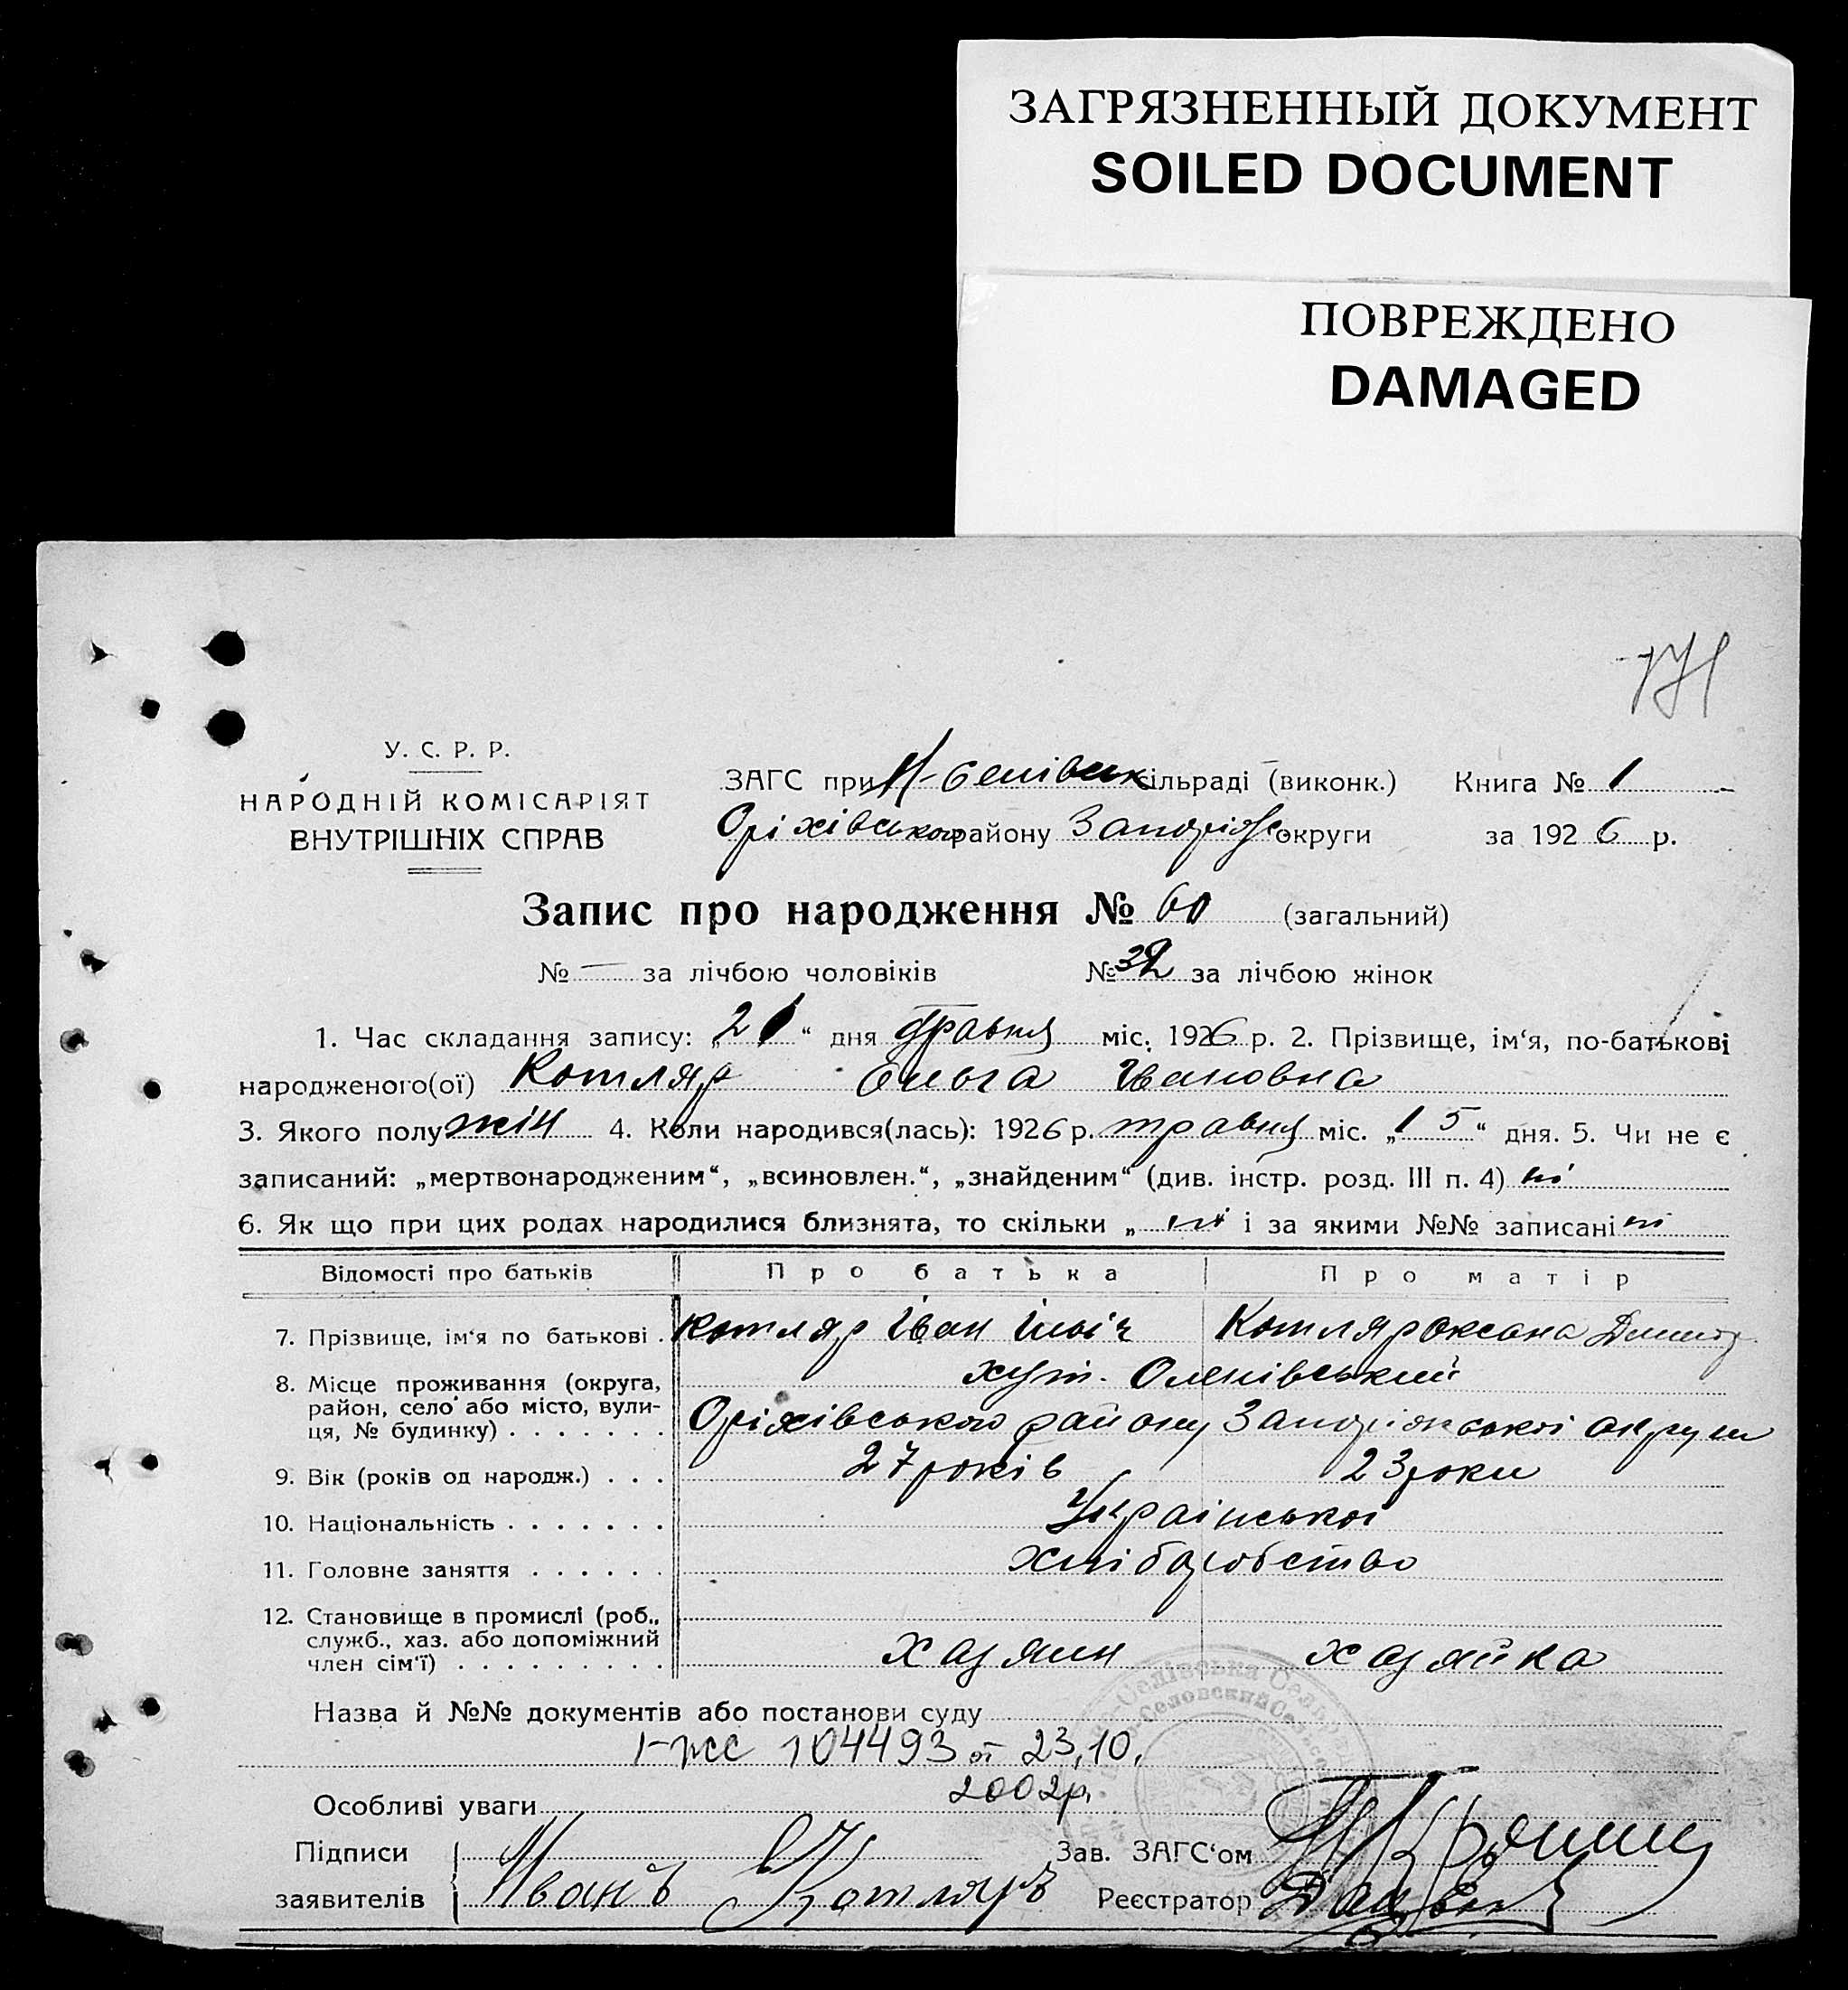 ЗАГРЯЗНЕННЫЙ ДОКУМЕНТ
SOILED DOCUMENT
ПОВРЕЖДЕНО
DAMAGED
171
У. С. Р. Р.
НАРОДНІЙ КОМІСАРІЯТ
ВНУТРІШНІХ СПРАВ
ЗАГС при Н-Селівск сільраді (виконк.) Книга № 1
Оріхівського району Запоріж округи за 1926 р.
Запис про народження № 60 (загальний)
№ — за лічбою чоловіків № 32 за лічбою жінок
1. Час складання запису: „21“ дня травня міс. 1926 р. 2. Прізвище, ім‘я, по-батькові
народженого(ої) Котляр Ольга Івановна
3. Якого полу жін 4. Коли народився(лась): 1926 р. травня міс. „15“ дня. 5. Чи не є
записаний: „мертвонародженим“, „всиновлен.“, „знайденим“ (див. інстр. розд. III п. 4) ні
6. Як що при цих родах народилися близнята, то скільки „ ні і за якими №№ записані ні
Відомості про батьків Про батька Про матір
7. Прізвище, ім‘я по батькові . Котляр Іван Ілліч Котляр Оксана Дмитр.
8. Місце проживання (округа, хут. Оленівський
район, село або місто, вули-
ця, № будинку) . . . . . . . Оріхівського району Запоріжської округи
9. Вік (років од народж.) . . . 27 років 23 роки
10. Національність . . . . . . . Української
11. Головне заняття . . . . . . хліборобство
12. Становище в промислі (роб.,
служб., хаз. або допоміжний
член сім‘ї) . . . . . . . . . хазяин хазяйка
Назва й №№ документів або постанови суду
І-жс 104493 от 23.10.
2002р.
Особливі уваги
Підписи Зав. ЗАГС‘ом
заявителів Иванъ Котляръ Реєстратор